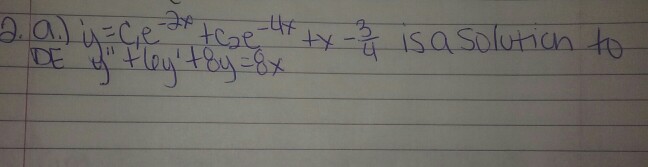 2. a.) y = c₁e^-2x + c₂e^-4x + x - 3/4 is a solution to
DE y'' + 6y' + 8y = 8x